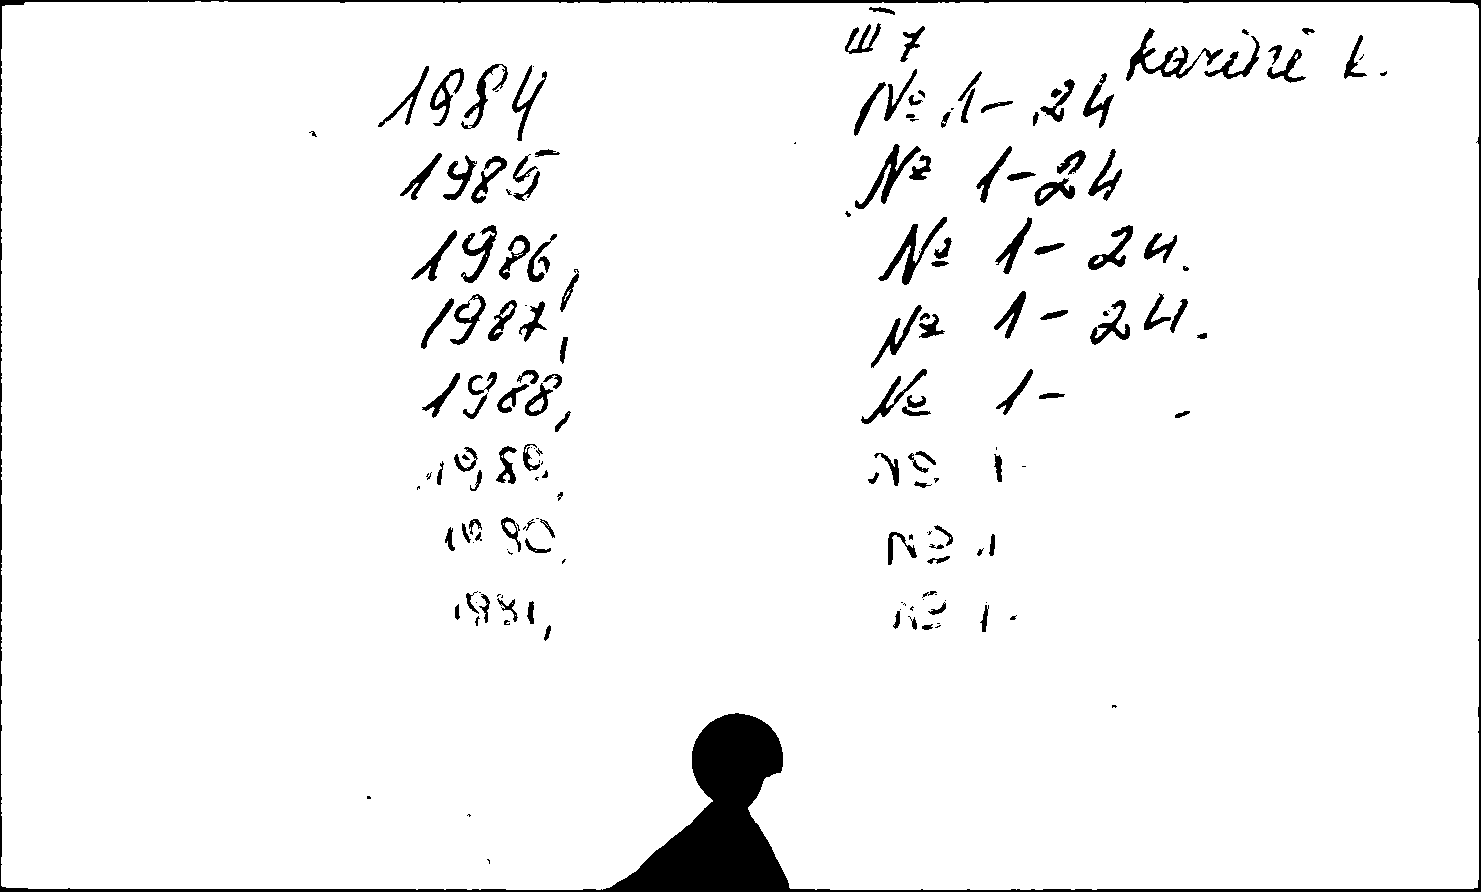 III 7
1984 № 1-24
1985 № 1-24
1986, № 1-24.
1987, № 1-24.
1988, № 1- .
1989, № 1-
1990, № 1
1991, № 1-